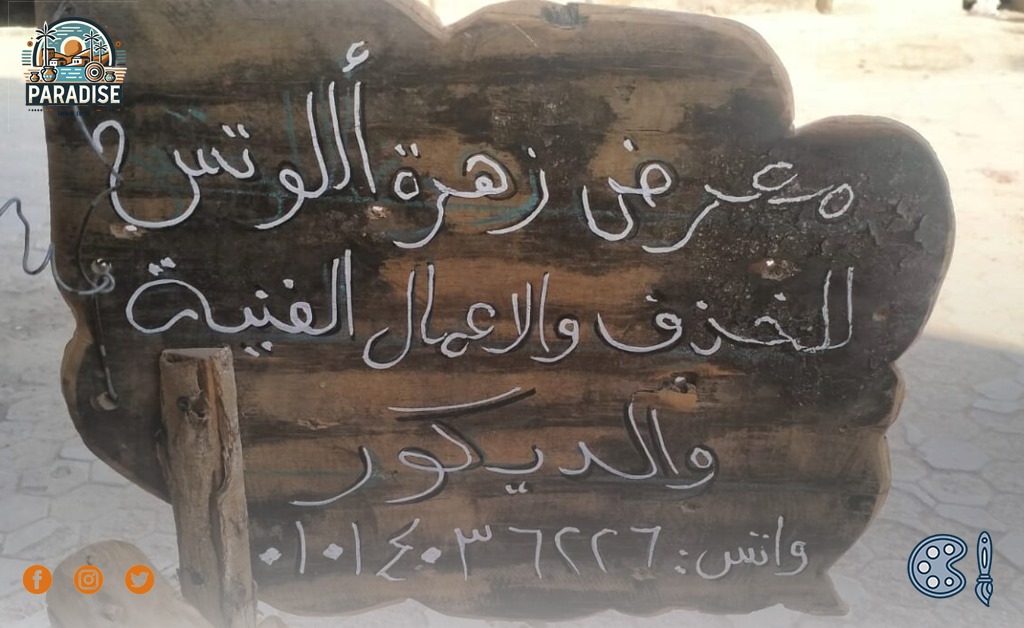 PARADISE
معرض زهرة أللوتس
للخذف والاعمال الفنية
والديكور
واتس: ٠١٠١٤٠٣٦٢٢٦